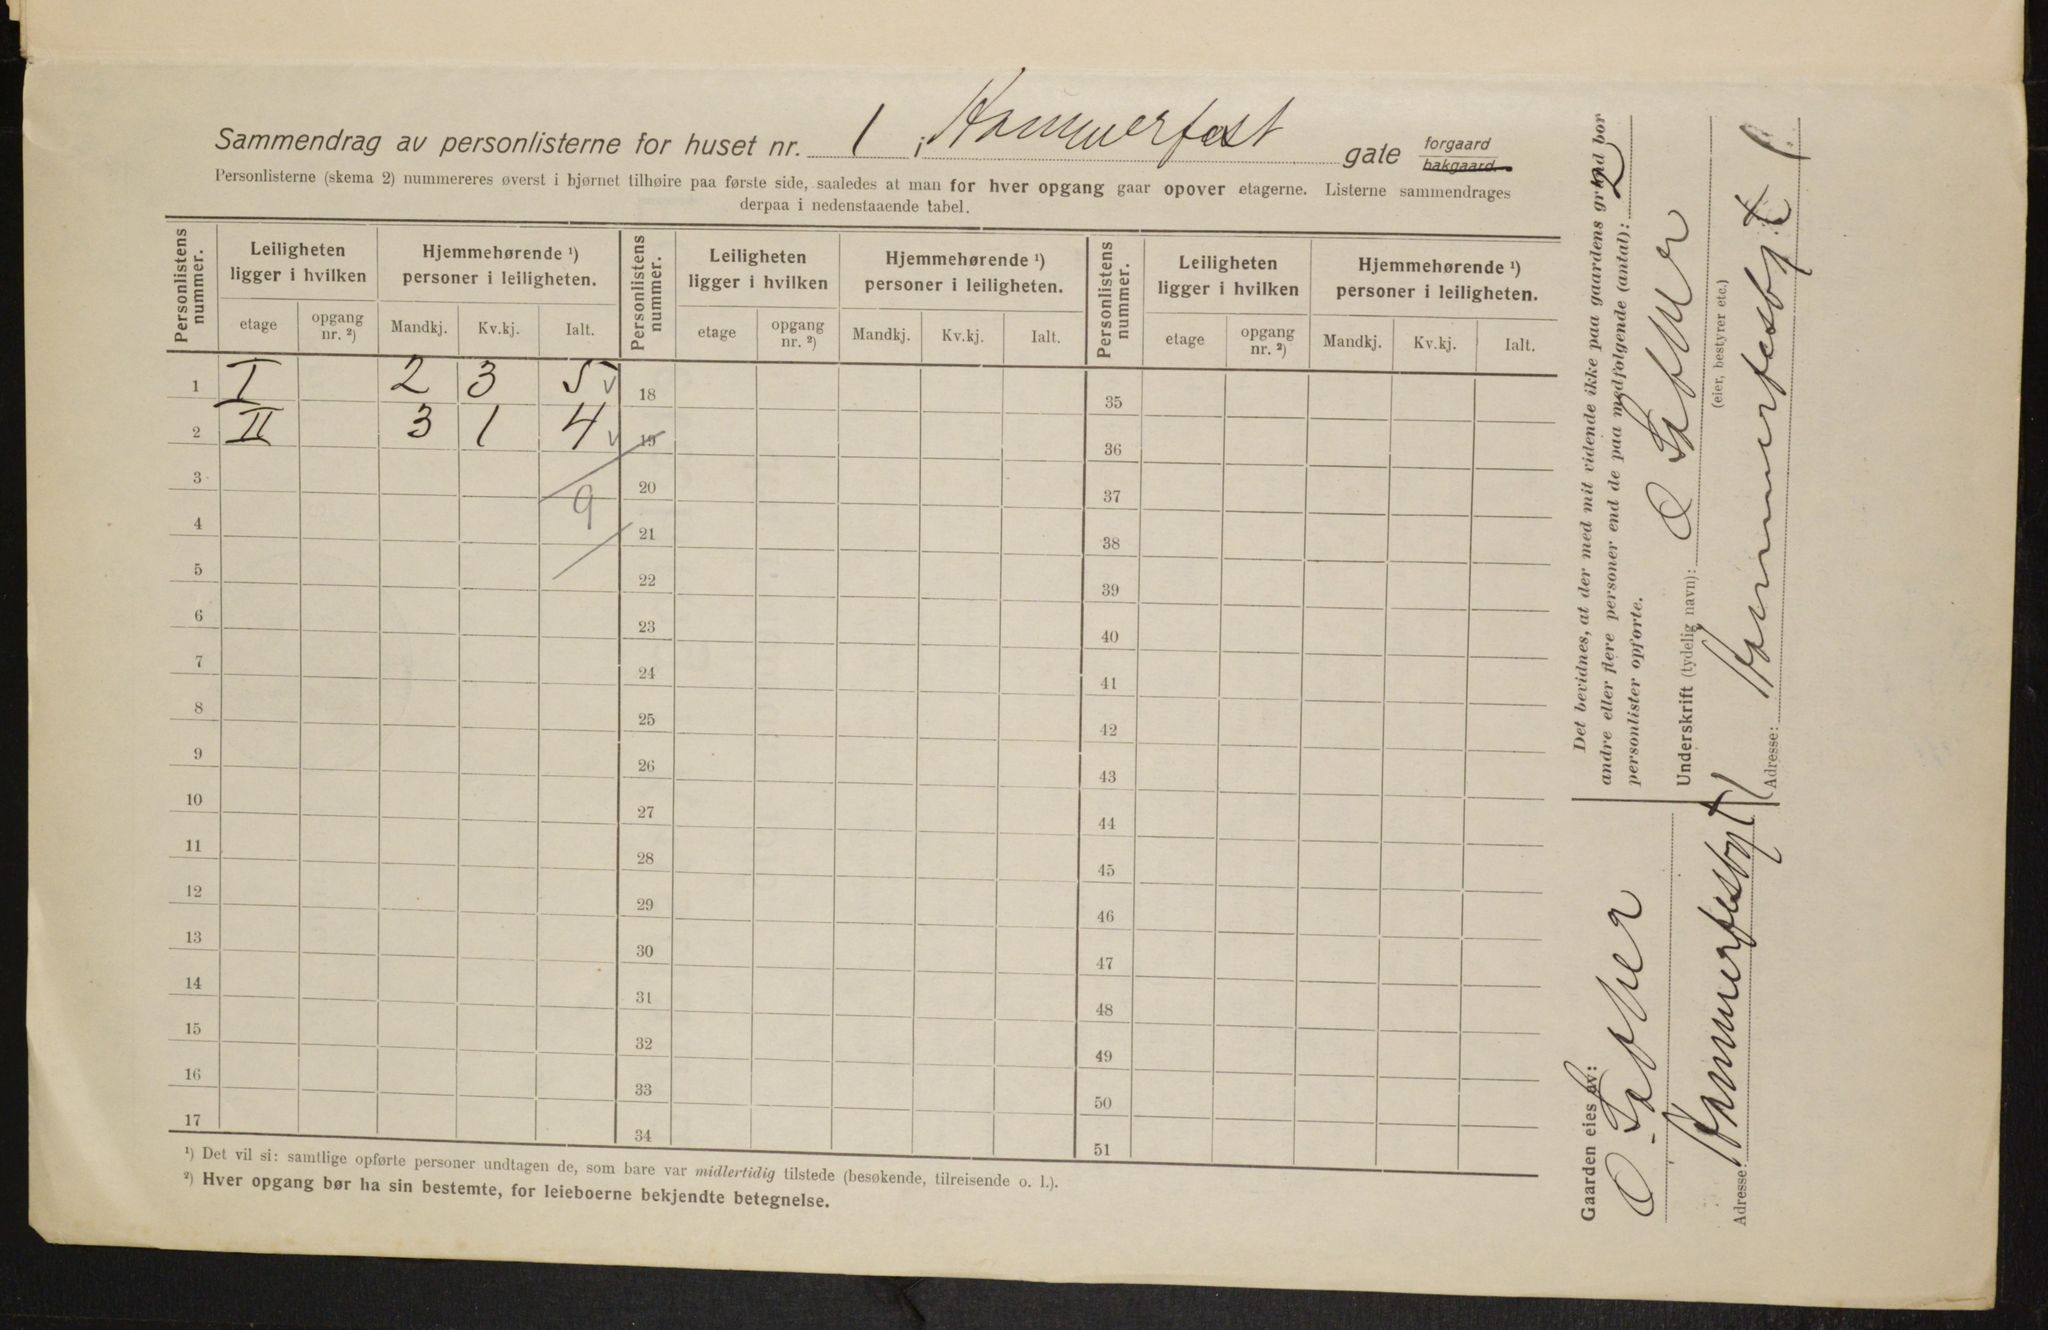 Sammendrag av personlisterne for huset nr. 1 i Hammerfest gate forgaard bakgaard.
Personlisterne (skema 2) nummereres øverst i hjørnet tilhøire paa første side, saaledes at man for hver opgang gaar opover etagerne. Listerne sammendrages
derpaa i nedenstaaende tabel.
Personlistens nummer. Leiligheten ligger i hvilken Hjemmehørende ¹) personer i leiligheten. Personlistens nummer. Leiligheten ligger i hvilken Hjemmehørende ¹) personer i leiligheten. Personlistens nummer. Leiligheten ligger i hvilken Hjemmehørende ¹) personer i leiligheten.
etage opgang nr. ²) Mandkj. Kv.kj. Ialt. etage opgang nr. ²) Mandkj. Kv.kj. Ialt. etage opgang nr. ²) Mandkj. Kv.kj. Ialt.
1 I 2 3 5 v 18 35
2 II 3 1 4 v 19 36
3 9 20 37
4 21 38
5 22 39
6 23 40
7 24 41
8 25 42
9 26 43
10 27 44
11 28 45
12 29 46
13 30 47
14 31 48
15 32 49
16 33 50
17 34 51
¹) Det vil si: samtlige opførte personer undtagen de, som bare var midlertidig tilstede (besøkende, tilreisende o. l.).
²) Hver opgang bør ha sin bestemte, for leieboerne bekjendte betegnelse.
Det bevidnes, at der med mit vidende ikke paa gaardens grund bor
andre eller flere personer end de paa medfølgende (antal): 2
personlister opførte.
Underskrift (tydelig navn): O
(eier, bestyrer etc.)
Adresse: Hammerfesbgt 1
Gaarden eies av:
O
Adresse: Hammerfesbgt 1